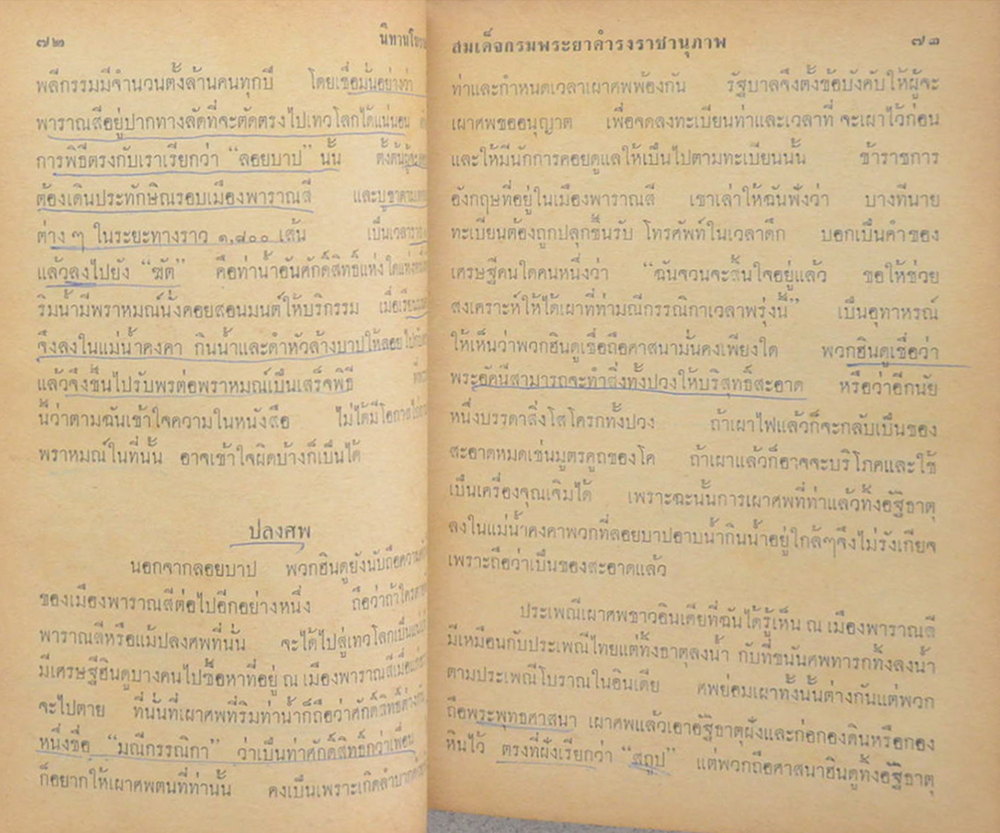 ๗๒
นิทานโบราณ
พลีกรรมมีจำนวนตั้งล้านคนทุกปี โดยเชื่อมั่นอย่างว่า
พาราณสีอยู่ปากทางลัดที่จะตัดตรงไปเทวโลกได้แน่นอน
การพิธีตรงกับเราเรียกว่า “ลอยบาป” นั้น ตั้งต้น
ต้องเดินประทักษิณรอบเมืองพาราณสี และบูชา
ต่าง ๆ ในระยะทางราว ๑,๘๐๐ เส้น เป็นเวลา
แล้วลงไปยัง “ฆัต” คือท่าน้ำอันศักดิ์สิทธิ์แห่งใดแห่ง
ริมน้ำมีพราหมณ์นั่งคอยสอนมนต์ให้บริกรรม เมื่อเรียน
จึงลงในแม่น้ำคงคา กินน้ำและดำหัวล้างบาปให้ลอย
แล้วจึงขึ้นไปรับพรต่อพราหมณ์เป็นเสร็จพิธี
นี้ว่าตามฉันเข้าใจความในหนังสือ ไม่ได้มีโอกาส
พราหมณ์ในที่นั้น อาจเข้าใจผิดบ้างก็เป็นได้
ปลงศพ
นอกจากลอยบาป พวกฮินดูยังนับถือความ
ของเมืองพาราณสีต่อไปอีกอย่างหนึ่ง ถือว่าถ้าใคร
พาราณสีหรือแม้ปลงศพที่นั่น จะได้ไปสู่เทวโลกเป็น
มีเศรษฐีฮินดูบางคนไปซื้อหาที่อยู่ ณ เมืองพาราณสีเมื่อ
จะไปตาย ที่นั่นที่เผาศพที่ริมท่าน้ำก็ถือว่าศักดิ์สิทธิ์ต่างกัน
หนึ่งชื่อ “มณีกรรณิกา” ว่าเป็นท่าศักดิ์สิทธิ์กว่าเพื่อน
ก็อยากให้เผาศพตนที่ท่านั้น คงเป็นเพราะเกิดลำบาก
สมเด็จกรมพระยาดำรงราชานุภาพ
๗๓
ท่าและกำหนดเวลาเผาศพพ้องกัน รัฐบาลจึงตั้งข้อบังคับให้ผู้จะ
เผาศพขออนุญาต เพื่อจดลงทะเบียนท่าและเวลาที่จะเผาไว้ก่อน
และให้มีนักการคอยดูแลให้เป็นไปตามทะเบียนนั้น ข้าราชการ
อังกฤษที่อยู่ในเมืองพาราณสี เขาเล่าให้ฉันฟังว่า บางทีนาย
ทะเบียนต้องถูกปลุกขึ้นรับ โทรศัพท์ในเวลาดึก บอกเป็นคำของ
เศรษฐีคนใดคนหนึ่งว่า “ฉันจวนจะสิ้นใจอยู่แล้ว ขอให้ช่วย
สงเคราะห์ให้ได้เผาที่ท่ามณีกรรณิกาเวลาพรุ่งนี้” เป็นอุทาหรณ์
ให้เห็นว่าพวกฮินดูเชื่อถือศาสนามั่นคงเพียงใด พวกฮินดูเชื่อว่า
พระอัคนีสามารถจะทำสิ่งทั้งปวงให้บริสุทธิ์สะอาด หรือว่าอีกนัย
หนึ่งบรรดาสิ่งโสโครกทั้งปวง ถ้าเผาไฟแล้วก็จะกลับเป็นของ
สะอาดหมดเช่นมูตรคูถของโค ถ้าเผาแล้วก็อาจจะบริโภคและใช้
เป็นเครื่องจุณเจิมได้ เพราะฉะนั้นการเผาศพที่ท่าแล้วทิ้งอัฐิธาตุ
ลงในแม่น้ำคงคาพวกที่ลอยบาปอาบน้ำกินน้ำอยู่ใกล้ๆจึงไม่รังเกียจ
เพราะถือว่าเป็นของสะอาดแล้ว
ประเพณีเผาศพชาวอินเดียที่ฉันได้รู้เห็น ณ เมืองพาราณสี
มีเหมือนกับประเพณีไทยแต่ทิ้งธาตุลงน้ำ กับที่ขนันศพทารกทิ้งลงน้ำ
ตามประเพณีโบราณในอินเดีย ศพย่อมเผาทั้งนั้นต่างกันแต่พวก
ถือพระพุทธศาสนา เผาศพแล้วเอาอัฐิธาตุฝังและก่อกองดินหรือกอง
หินไว้ ตรงที่ฝังเรียกว่า “สถูป” แต่พวกถือศาสนาฮินดูทิ้งอัฐิธาตุ